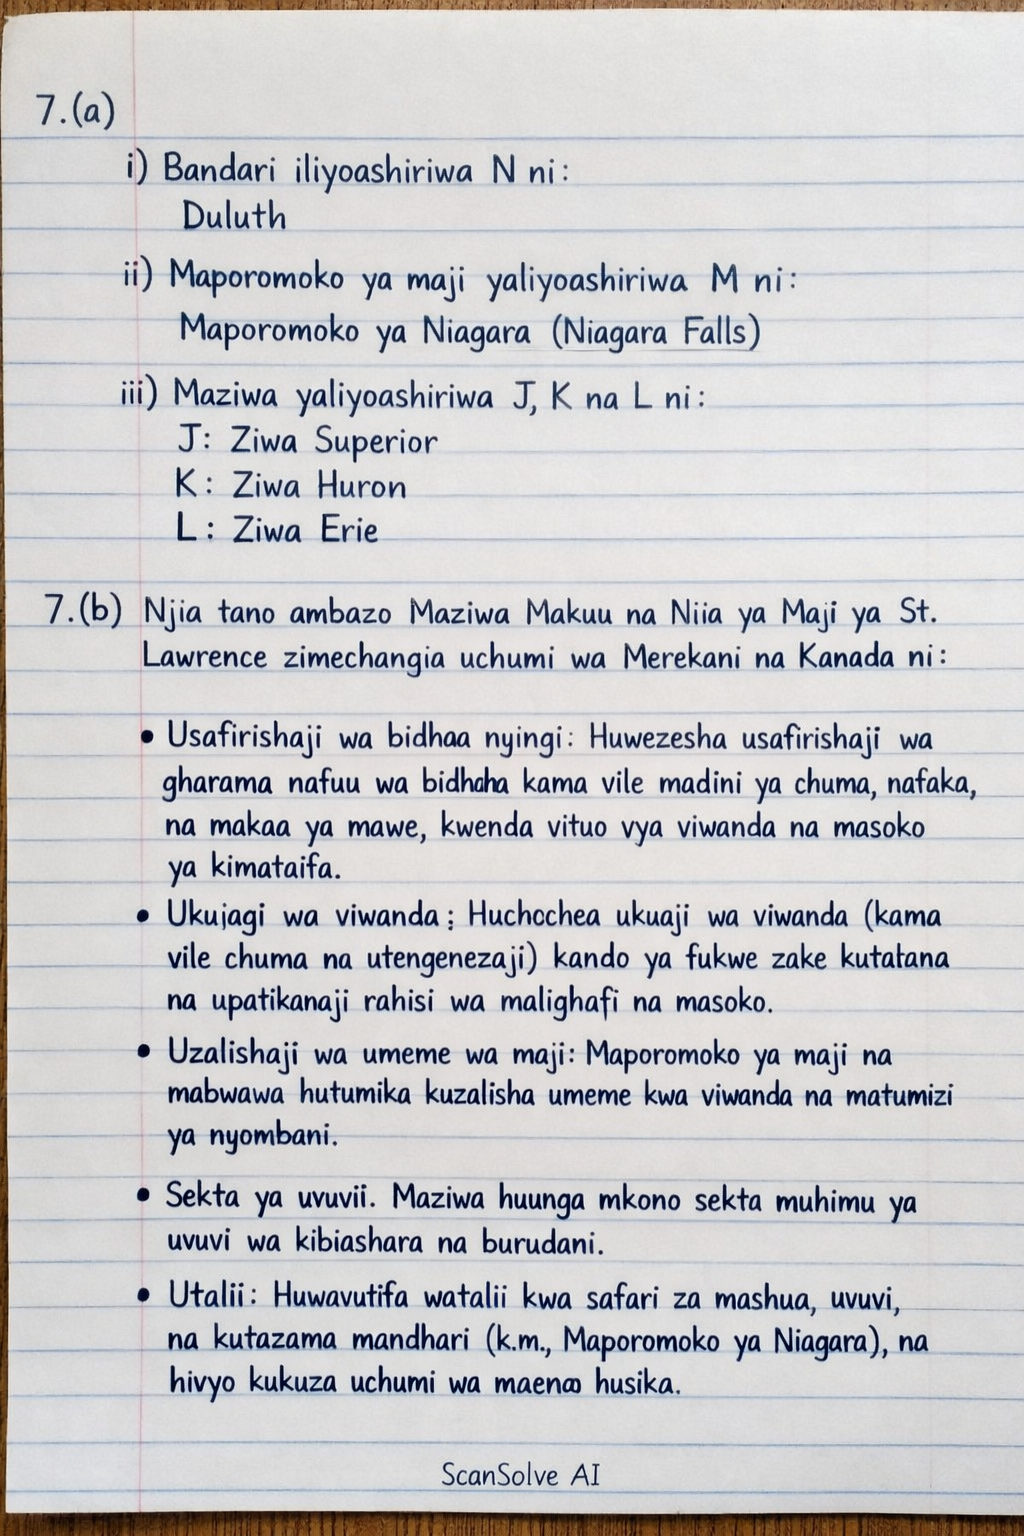 7.(a)
i) Bandari iliyoashiriwa N ni:
Duluth
ii) Maporomoko ya maji yaliyoashiriwa M ni:
Maporomoko ya Niagara (Niagara Falls)
iii) Maziwa yaliyoashiriwa J, K na L ni:
J: Ziwa Superior
K: Ziwa Huron
L: Ziwa Erie
7.(b) Njia tano ambazo Maziwa Makuu na Niia ya Maji ya St.
Lawrence zimechangia uchumi wa Merekani na Kanada ni:
• Usafirishaji wa bidhaa nyingi: Huwezesha usafirishaji wa
gharama nafuu wa bidhaha kama vile madini ya chuma, nafaka,
na makaa ya mawe, kwenda vituo vya viwanda na masoko
ya kimataifa.
• Ukujagi wa viwanda: Huchochea ukuaji wa viwanda (kama
vile chuma na utengenezaji) kando ya fukwe zake kutatana
na upatikanaji rahisi wa malighafi na masoko.
• Uzalishaji wa umeme wa maji: Maporomoko ya maji na
mabwawa hutumika kuzalisha umeme kwa viwanda na matumizi
ya nyombani.
• Sekta ya uvuvii. Maziwa huunga mkono sekta muhimu ya
uvuvi wa kibiashara na burudani.
• Utalii: Huwavutifa watalii kwa safari za mashua, uvuvi,
na kutazama mandhari (k.m., Maporomoko ya Niagara), na
hivyo kukuza uchumi wa maenao husika.
ScanSolve AI